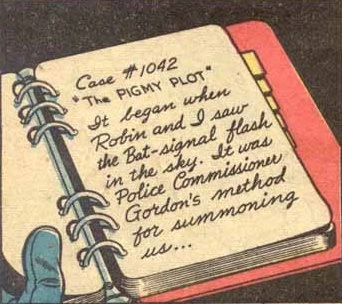 Case #1042
"The PIGMY PLOT"
It began when
Robin and I saw
the Bat-signal flash
in the sky. It was
Police Commissioner
Gordon's method
for summoning
us...